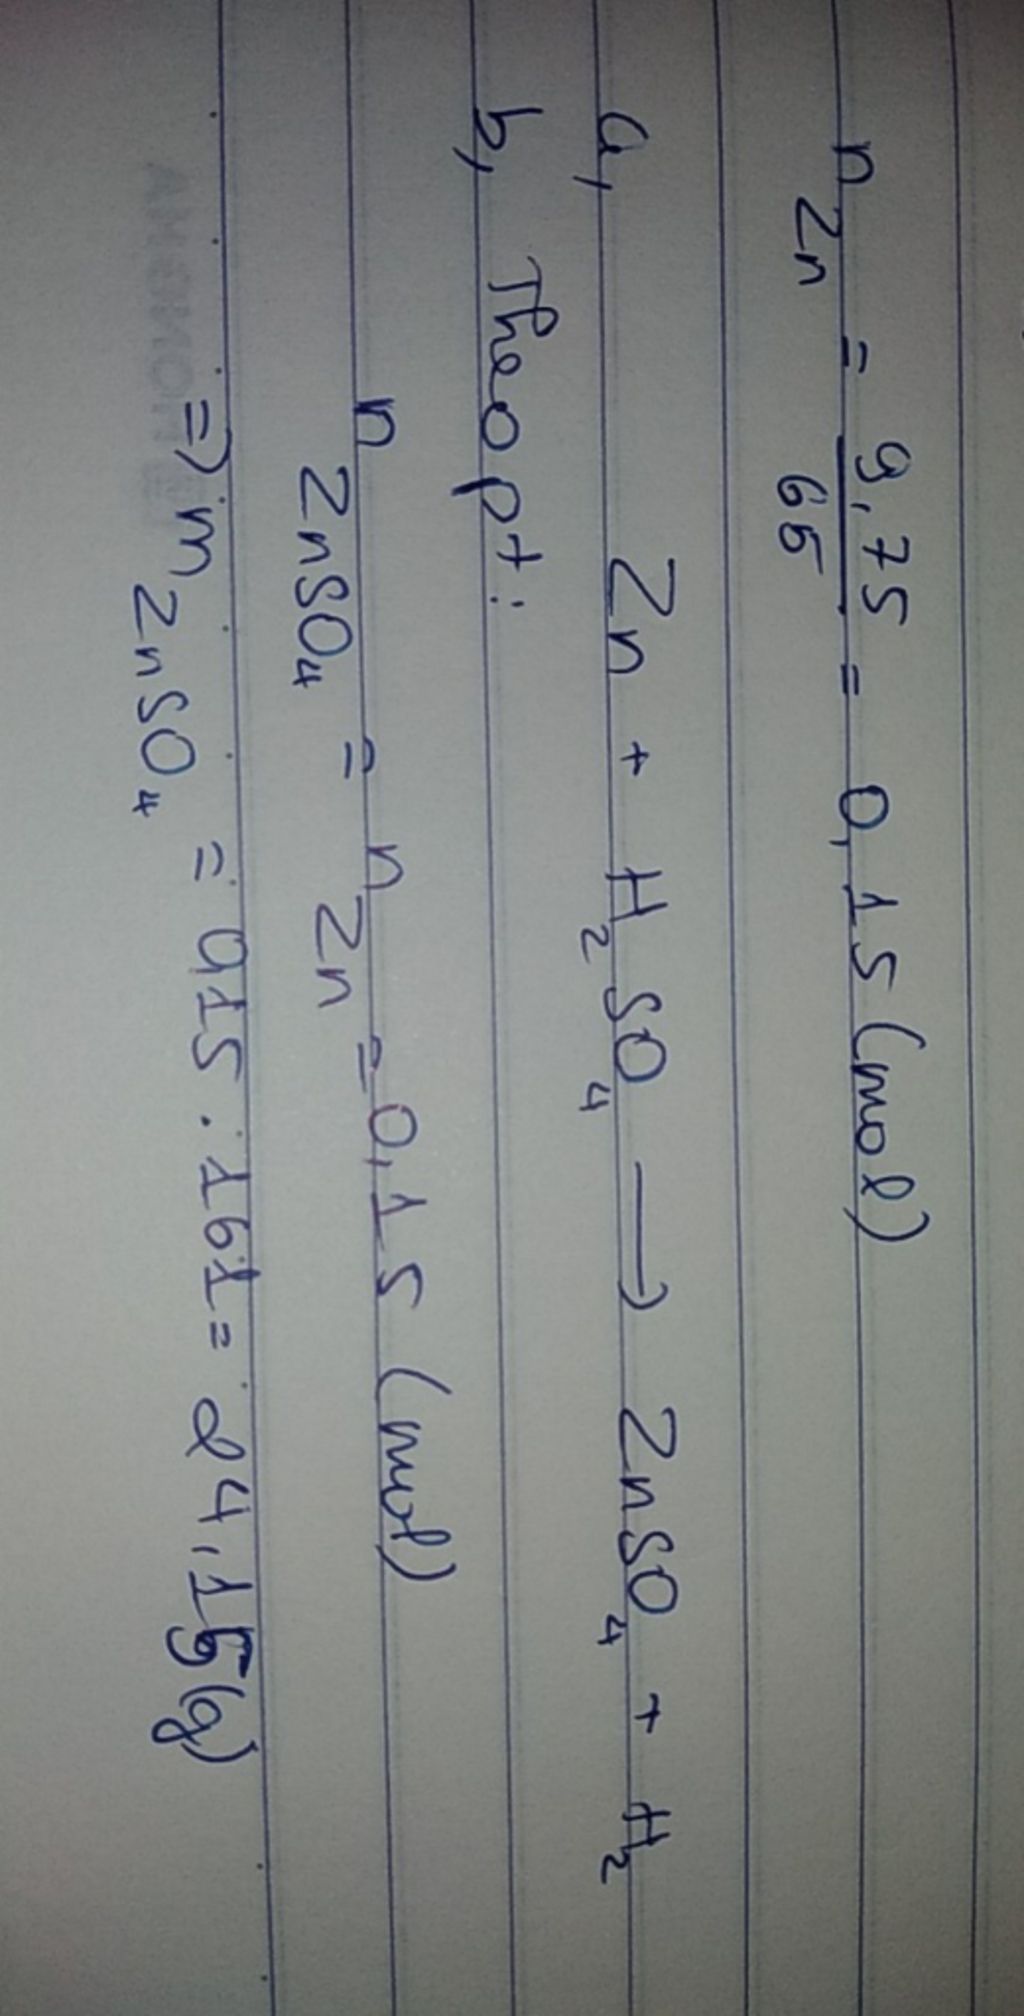 n Zn = 9,75/65 = 0,15 (mol)
a, Zn + H2SO4 → ZnSO4 + H2
b, Theo pt :
n ZnSO4 = n Zn = 0,15 (mol)
=> m ZnSO4 = 0,15 . 161 = 24,15 (g)